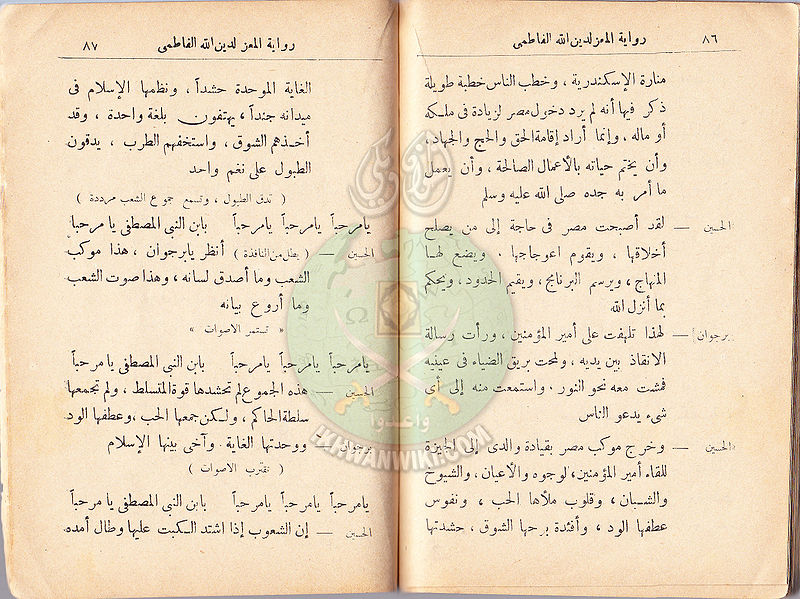 ٨٦ رواية المعز لدين الله الفاطمى
منارة الإسكندرية ، وخطب الناس خطبة طويلة
ذكر فيها أنه لم يرد دخول مصر لزيادة فى ملكه
أو ماله ، وإنما أراد إقامة الحق والحج والجهاد،
وأن يختم حياته بالأعمال الصالحة ، وأن يعمل
ما أمر به جده صلى الله عليه وسلم
الحسين — لقد أصبحت مصر فى حاجة إلى من يصلح
أخلاقها ، ويقوم اعوجاجها . ويضع لهــا
المنهاج ، ويرسم البرنامج، ويقيم الحدود، ويحكم
بما أنزل الله
برجوان — لهذا تلهفت على أمير المؤمنين ، ورأت رسالة
الانقاذ بين يديه ، ولمحت بريق الضياء فى عينيه
فمشت معه نحو النور . واستمعت منه إلى أى
شىء يدعو الناس
الحسين — وخرج موكب مصر بقيادة والدى إلى الجيزة
للقاء أمير المؤمنين، لوجوه والأعيان، والشيوخ
والشبان ، وقلوب ملأها الحب ، ونفوس
عطفها الود ، وأفئدة برحها الشوق ، حشدتها
رواية المعز لدين الله الفاطمى ٨٧
الغاية الموحدة حشداً ، ونظمها الإسلام فى
ميدانه جنداً ، يهتفون بلغة واحدة ، وقد
أخذهم الشوق ، واستخفهم الطرب ، يدقون
الطبول على نغم واحد
( تدق الطبول ، وتسمع جموع الشعب مرددة )
يامرحباً يامرحباً يامرحباً بابن النبى المصطفى يا مرحبا
الحسين — ( يطل من النافذة ) أنظر يابرجوان ، هذا موكب
الشعب وما أصدق لسانه ، وهذا صوت الشعب
وما أروع بيانه
« تستمر الاصوات »
يامرحباً يامرحباً يامرحباً بابن النبى المصطفى يا مرحباً
الحسين — هذه الجموع لم تحشدها قوة المتسلط ، ولم تجمعها
سلطة الحاكم ، ولـكن جمعها الحب ، وعطفها الود
برجوان — ووحدتها الغاية . وآخى بينها الإسلام
( تقترب الاصوات )
يامرحباً يامرحباً يامرحباً بابن النبى المصطفى يا مرحباً
الحسين — إن الشعوب إذا اشتد الكبت عليها وطال أمده
إخوان ويكى
وأعدوا
IKHWANWIKI.COM